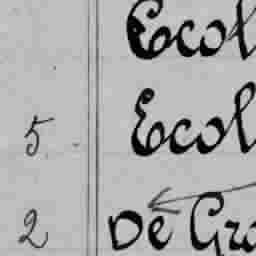 Ecol
5 Ecol
2 De Gra